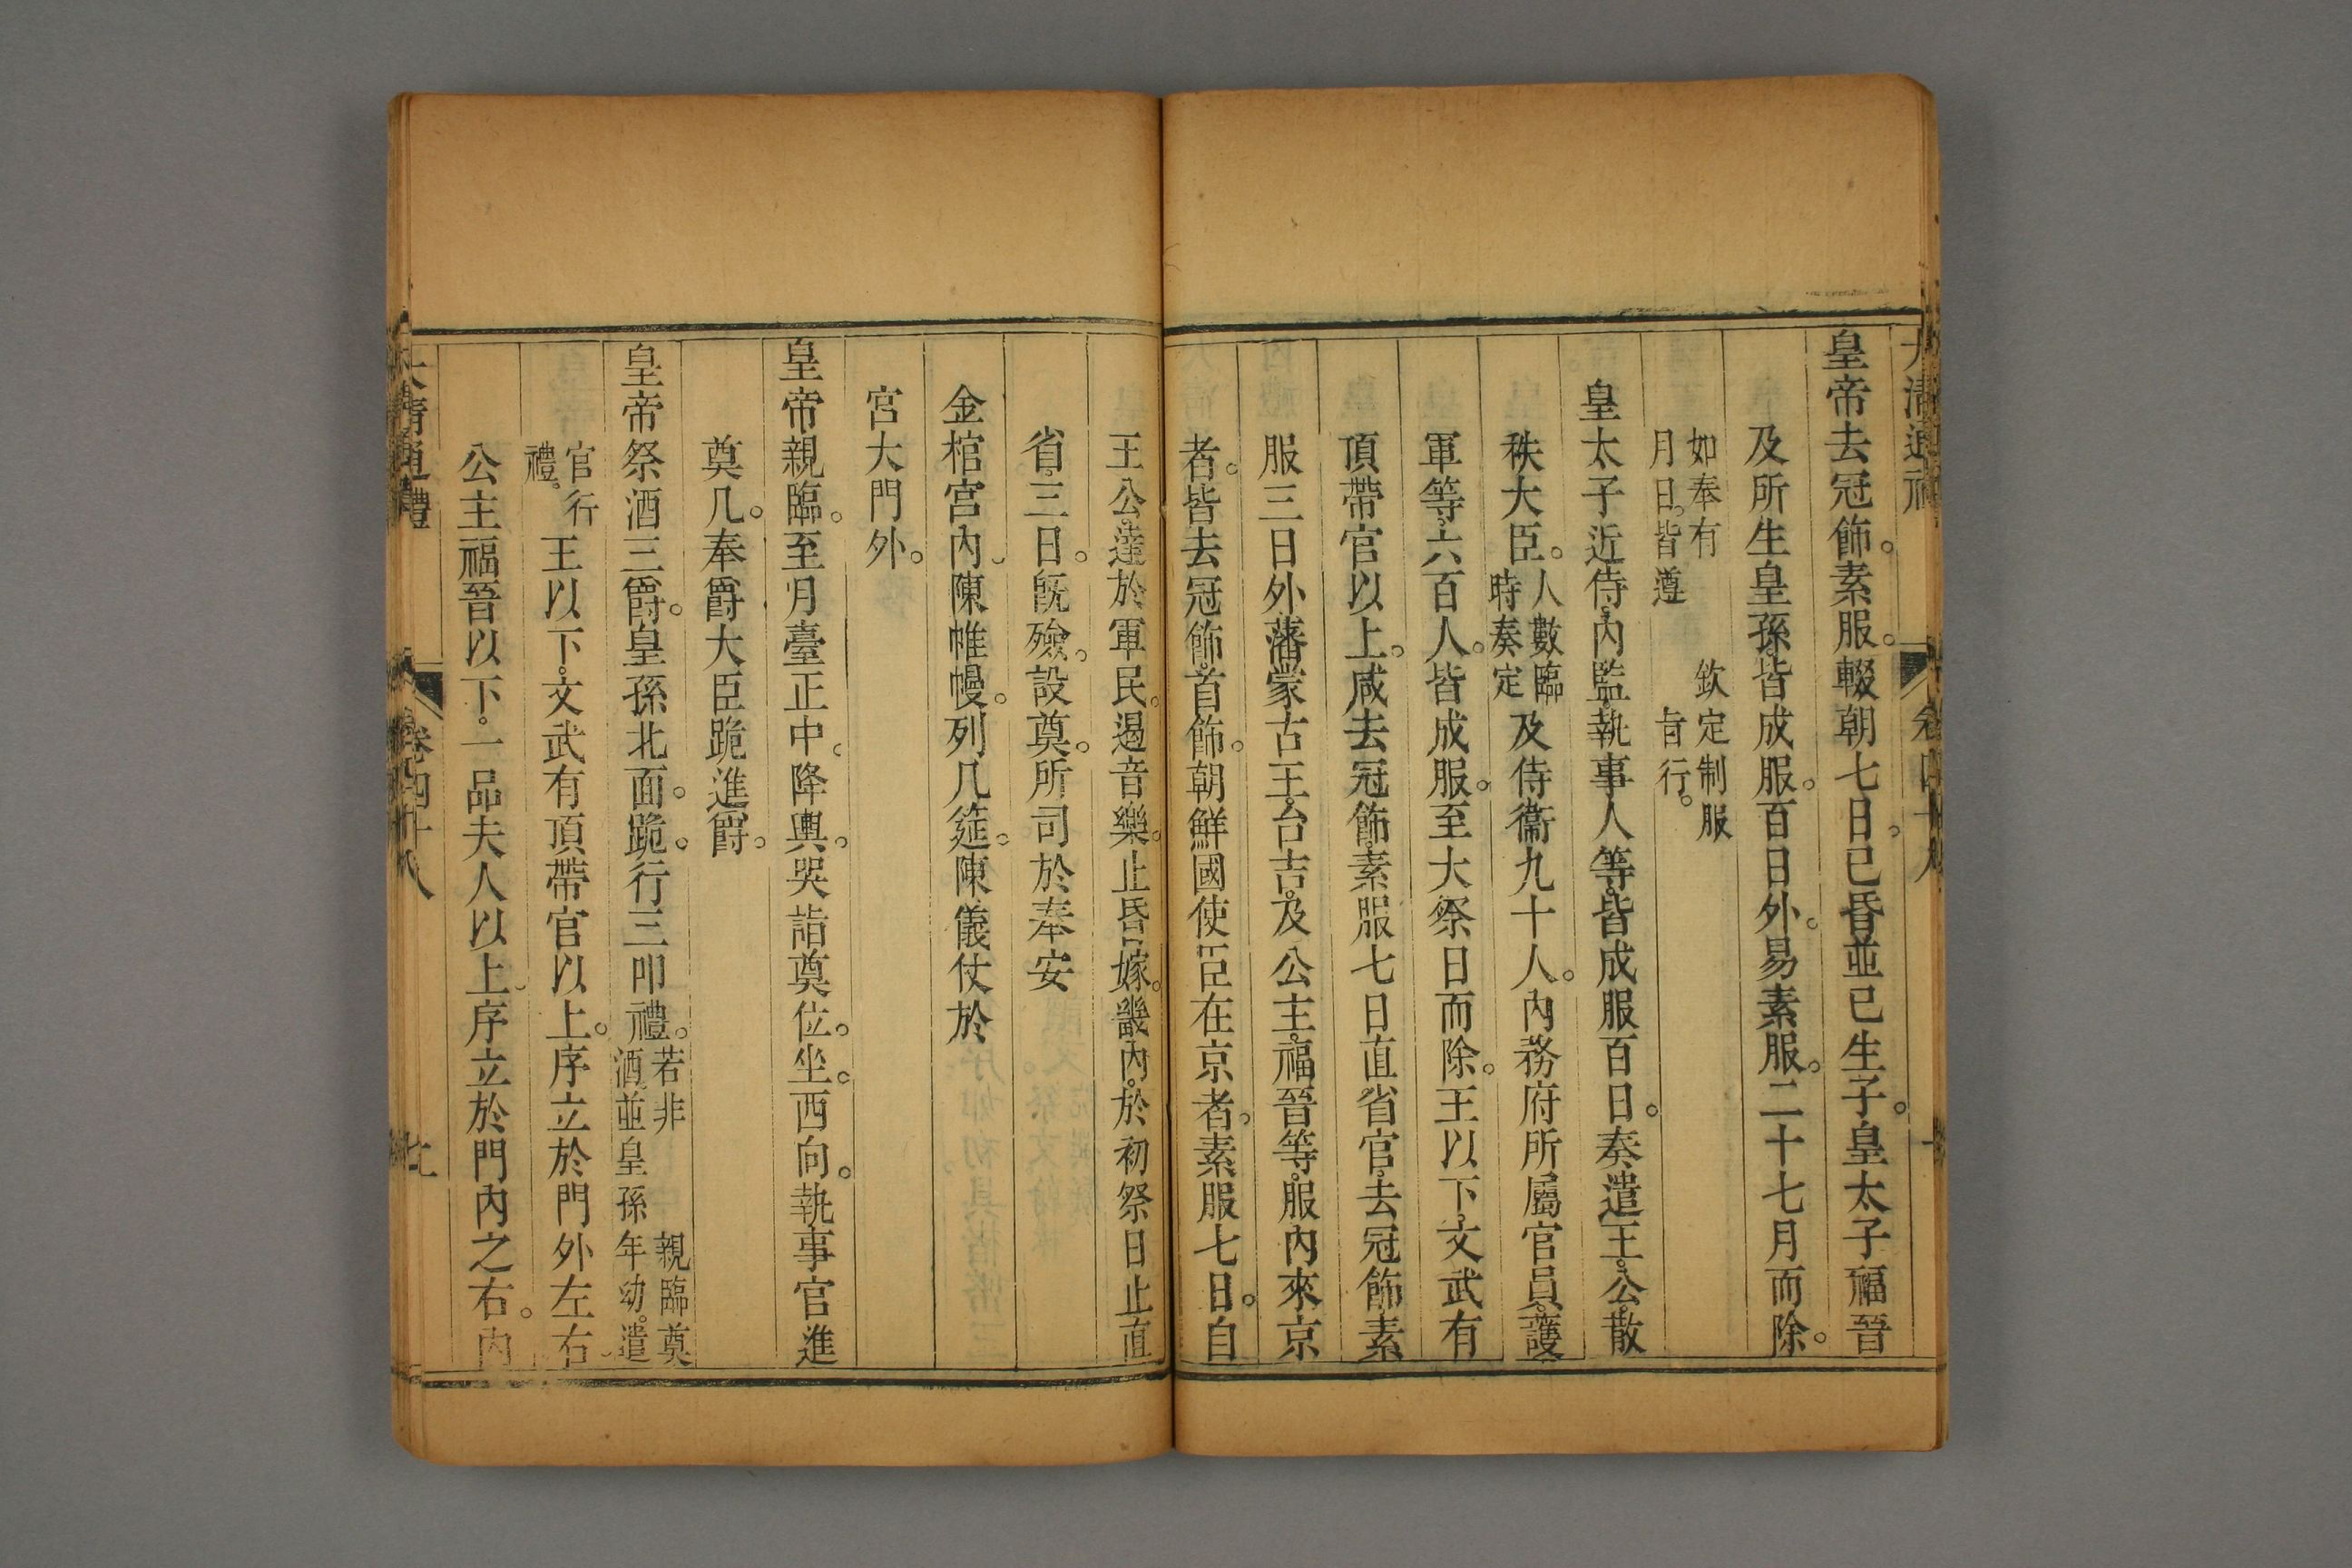 大清通禮 卷四十八
皇帝去冠飾。素服。輟朝七日。已昏並已生子。皇太子福晉
及所生皇孫。皆成服。百日外。易素服。二十七月而除。
如奉有 欽定制服
月日。皆遵 旨行。
皇太子近侍。內監。執事人等。皆成服百日。奏遣王。公。散
秩大臣。人數臨時奏定及侍衞九十人。內務府所屬官員。護
軍等。六百人。皆成服。至大祭日而除。王以下。文武有
頂帶官以上。咸去冠飾。素服七日。直省官。去冠飾素
服三日。外藩蒙古王。台吉。及公主。福晉等。服內來京
者。皆去冠飾。首飾。朝鮮國使臣在京者。素服七日。自
王公。達於軍民。遏音樂。止昏嫁。畿內。於初祭日止。直
省。三日。旣殮。設奠。所司於奉安
金棺宮內。陳帷幔。列几筵。陳儀仗於
宮大門外。
皇帝親臨。至月臺正中。降輿。哭詣奠位。坐。西向。執事官進
奠几。奉爵大臣跪進爵。
皇帝祭酒三爵。皇孫北面。跪。行三叩禮。若非 親臨奠
酒。並皇孫年幼。遣
官行
禮。王以下。文武有頂帶官以上。序立於門外左右。
公主福晉以下。一品夫人以上。序立於門內之右。內
大清通禮 卷四十八